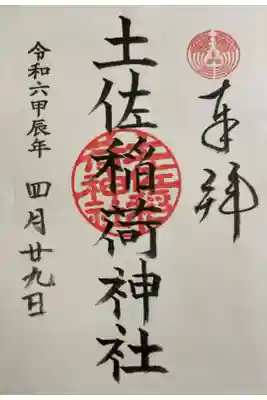 奉拝
土佐稲荷神社
令和六甲辰年
四月廿九日